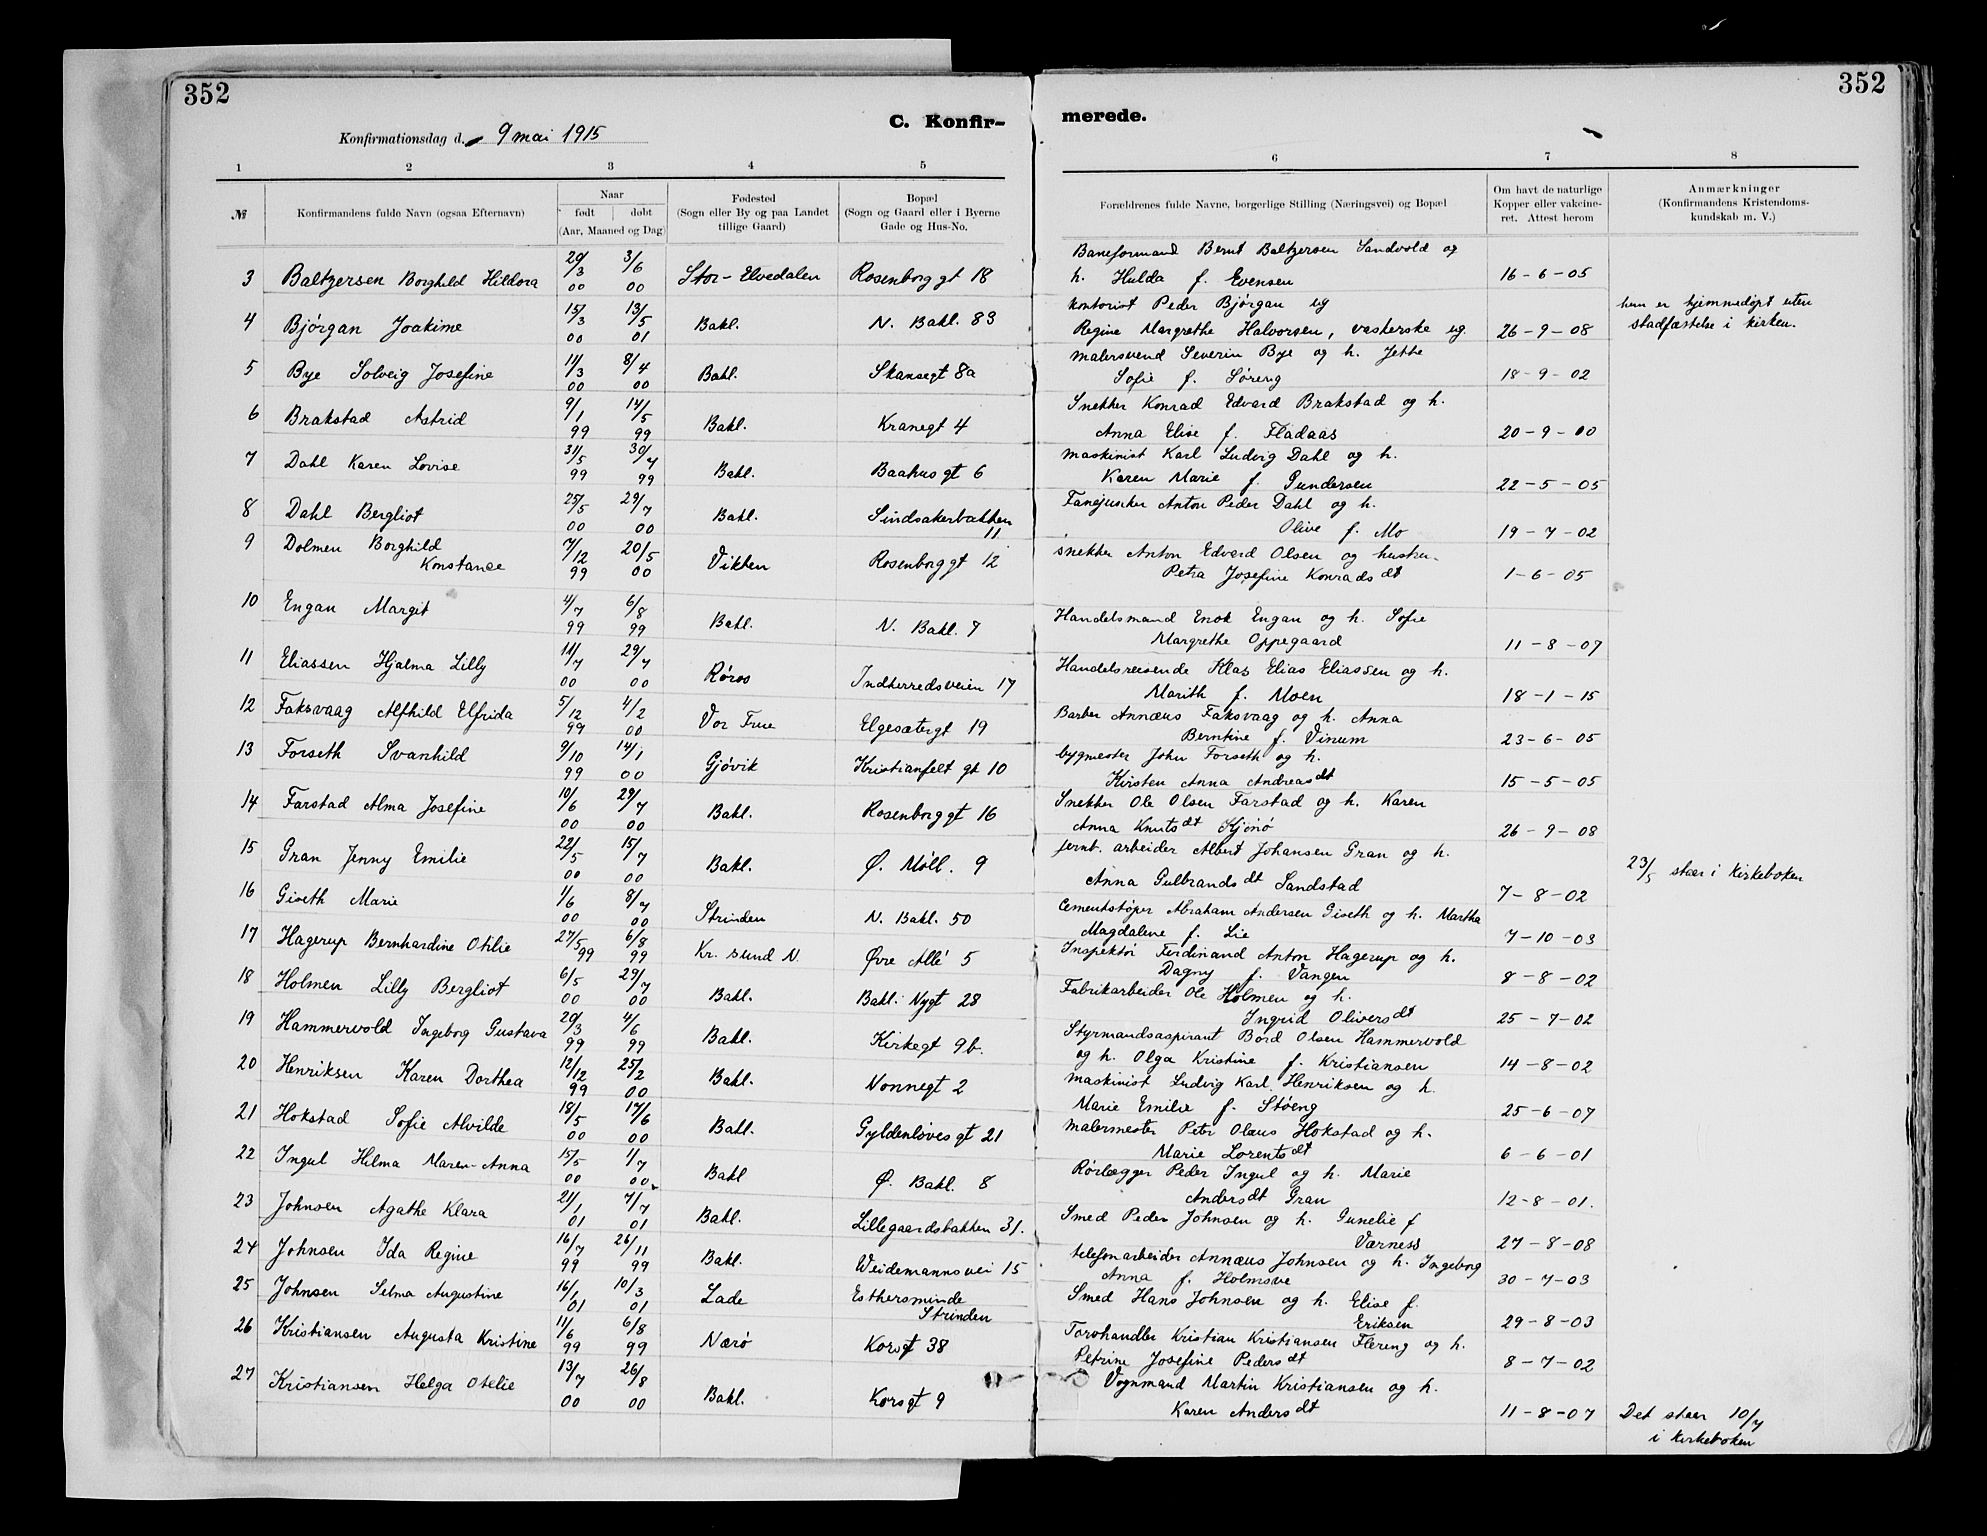 352
352
C. Konfir-
merede.
Konfirmationsdag d. 9 mai 1915
1 2 3 4 5 6 7 8
№ Konfirmandens fulde Navn (ogsaa Efternavn)
Naar
født døbt
(Aar, Maaned og Dag)
Fødested
(Sogn eller By og paa Landet
tillige Gaard)
Bopæl
(Sogn og Gaard eller i Byerne
Gade og Hus-No.
Forældrenes fulde Navne, borgerlige Stilling (Næringsvei) og Bopæl
Om havt de naturlige
Kopper eller vakcine-
ret. Attest herom
Anmærkninger
(Konfirmandens Kristendoms-
kundskab m. V.)
3 Baltzersen Borghild Hildora 20/3 00 3/6 00 Stor-Elvedalen Rosenborggt 18
Baneformand Bernt Baltzersen Sandvold og
h. Hulda f. Evensen 16-6-05
4 Bjørgan Joakime 15/3 00 13/5 01 Bakl. N. Bakl. 83
kontorist Peder Bjørgan og
Regine Margrethe Halvorsen, vaskerske ug. 26-9-08
hun er hjemmedøpt uten
stadfæstelse i kirken.
5 Bye Solveig Josefine 11/3 00 8/4 00 Bakl. Skansegt 8a
malersvend Severin Bye og h. Jette
Sofie f. Søreng 18-9-02
6 Brakstad Astrid 9/1 99 14/5 99 Bakl. Kranegt 4
Snekker Konrad Edvard Brakstad og h.
Anna Elise f. Fladaas 20-9-00
7 Dahl Karen Lovise 31/5 99 30/7 99 Bakl. Baahus gt 6
maskinist Karl Ludvig Dahl og h.
Karen Marie f. Gundersen 22-5-05
8 Dahl Bergliot 25/5 00 29/7 00 Bakl. Sindsakerbakken
11
Fanejunker Anton Peder Dahl og h.
Olive f. Mo 19-7-02
9 Dolmen Borghild
Konstance 7/12 99 20/5 00 Vikten Rosenborggt 12
snekker Anton Edvard Olsen og hustru
Petra Josefine Konradsdt 1-6-05
10 Engan Margit 4/7 99 6/8 99 Bakl. N. Bakl. 7
Handelsmand Enok Engan og h. Sofie
Margrethe Oppegaard 11-8-07
11 Eliassen Hjalma Lilly 11/7 00 29/7 00 Røros Indherredsveien 17
Handelsreisende Klas Elias Eliassen og h.
Marith f. Moen 18-1-15
12 Faksvaag Alfhild Elfrida 5/12 99 4/2 00 Vor Frue Elgesætergt 19
Barber Annæus Faksvaag og h. Anna
Berntine f. Vinum 23-6-05
13 Forseth Svanhild 9/10 99 14/1 00 Gjøvik Kristianfelt gt 10
bygmester John Forseth og h.
Kirsten Anna Andreasdt 15-5-05
14 Farstad Alma Josefine 10/6 00 29/7 00 Bakl. Rosenborggt 16
Snekker Ole Olsen Farstad og h. Karen
Anna Knutsdt Kjønø 26-9-08
15 Gran Jenny Emilie 22/5 00 15/7 00 Bakl. Ø. Møll. 9
jernb. arbeider Albert Johansen Gran og h.
Anna Gulbrandsdt Sandstad 7-8-02
23/5 staar i kirkeboken
16 Giseth Marie 1/6 00 8/7 00 Strinden N. Bakl. 50
Cementstøper Abraham Andersen Giseth og h. Martha
Magdalene f. Lie 7-10-03
17 Hagerup Bernhardine Otilie 27/5 99 6/8 99 Kr. sund N. Øvre Allé 5
Inspektør Ferdinand Anton Hagerup og h.
Dagny f. Vangen 8-8-02
18 Holmen Lilly Bergliot 6/5 00 29/7 00 Bakl. Bakl. Nygt 28
Fabrikarbeider Ole Holmen og h.
Ingrid Oliversdt 25-7-02
19 Hammervold Ingeborg Gustava 20/3 99 4/6 99 Bakl. Kirkegt 9b.
Styrmandsaspirant Bord Olsen Hammervold
og h. Olga Kristine f. Kristiansen 14-8-02
20 Henriksen Karen Dorthea 12/12 99 25/2 00 Bakl. Nonnegt 2
maskinist Ludvig Karl Henriksen og h.
Marie Emilie f. Støeng 25-6-07
21 Hokstad Sofie Alvilde 18/5 00 17/6 00 Bakl. Gyldenløves gt 21
malermester Peter Olaus Hokstad og h.
Marie Lorentsdt 6-6-01
22 Ingul Hilma Maren-Anna 15/5 00 1/7 00 Bakl Ø. Bakl. 8
Rørlægger Peder Ingul og h. Marie
Andersdt Gran 12-8-01.
23 Johnsen Agathe Klara 21/1 01 7/7 01 Bakl. Lillegaardsbakken 31.
Smed Peder Johnsen og h. Gunelie f
Værness 27-8-08
24 Johnsen Ida Regine 16/7 99 26/11 99 Bakl. Weidemannsvei 15
telefonarbeider Annæus Johnsen og h. Ingeborg
Anna f. Holmsve 30-7-03
25 Johnsen Selma Augustine 16/1 01 10/3 01 Lade Esthersminde
Strinden
Smed Hans Johnsen og h. Elise f.
Eriksen 29-8-03
26 Kristiansen Augusta Kristine 11/6 99 6/8 99 Nærø Korsgt 38
Torvhandler Kristian Kristiansen Flereng og h.
Petrine Josefine Pedersdt 8-7-02
27 Kristiansen Helga Otelie 13/7 00 26/8 00 Bakl. Korsgt 9
Vognmand Martin Kristiansen og h.
Karen Andersdt 11-8-07
Det staar 10/7
i kirkeboken